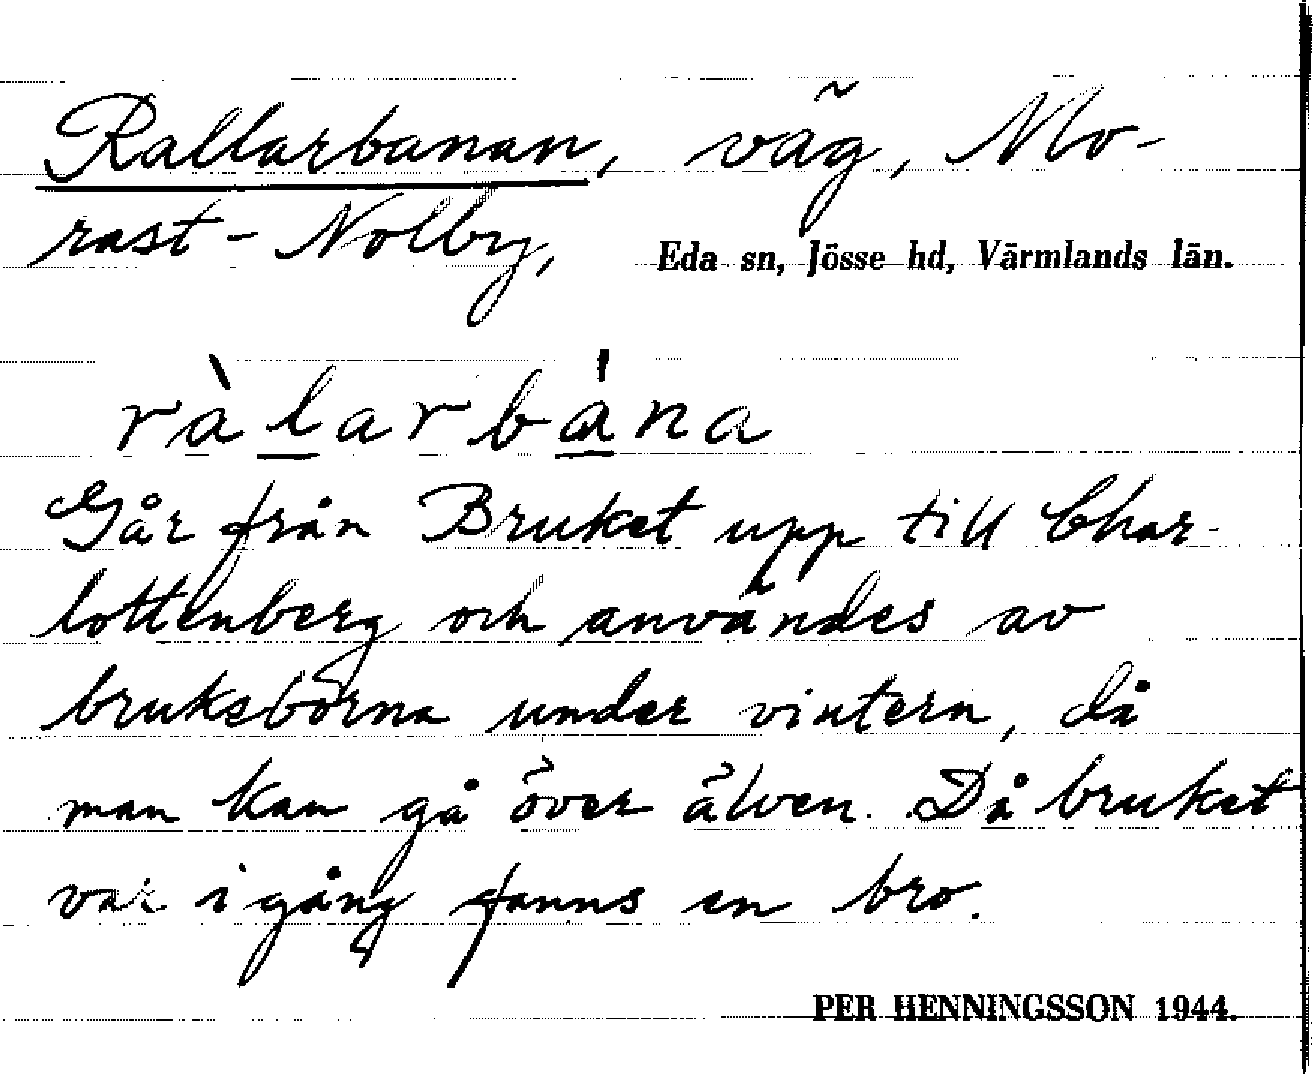 Rallarbanan, väg, Mo-
rast - Nolby, Eda sn, Jösse hd, Värmlands län.
ràlarbána
Går från Bruket upp till Char-
lottenberg och användes av
bruksborna under vintern, då
man kan gå över älven. Då bruket
var igång fanns en bro.
PER HENNINGSSON 1944.